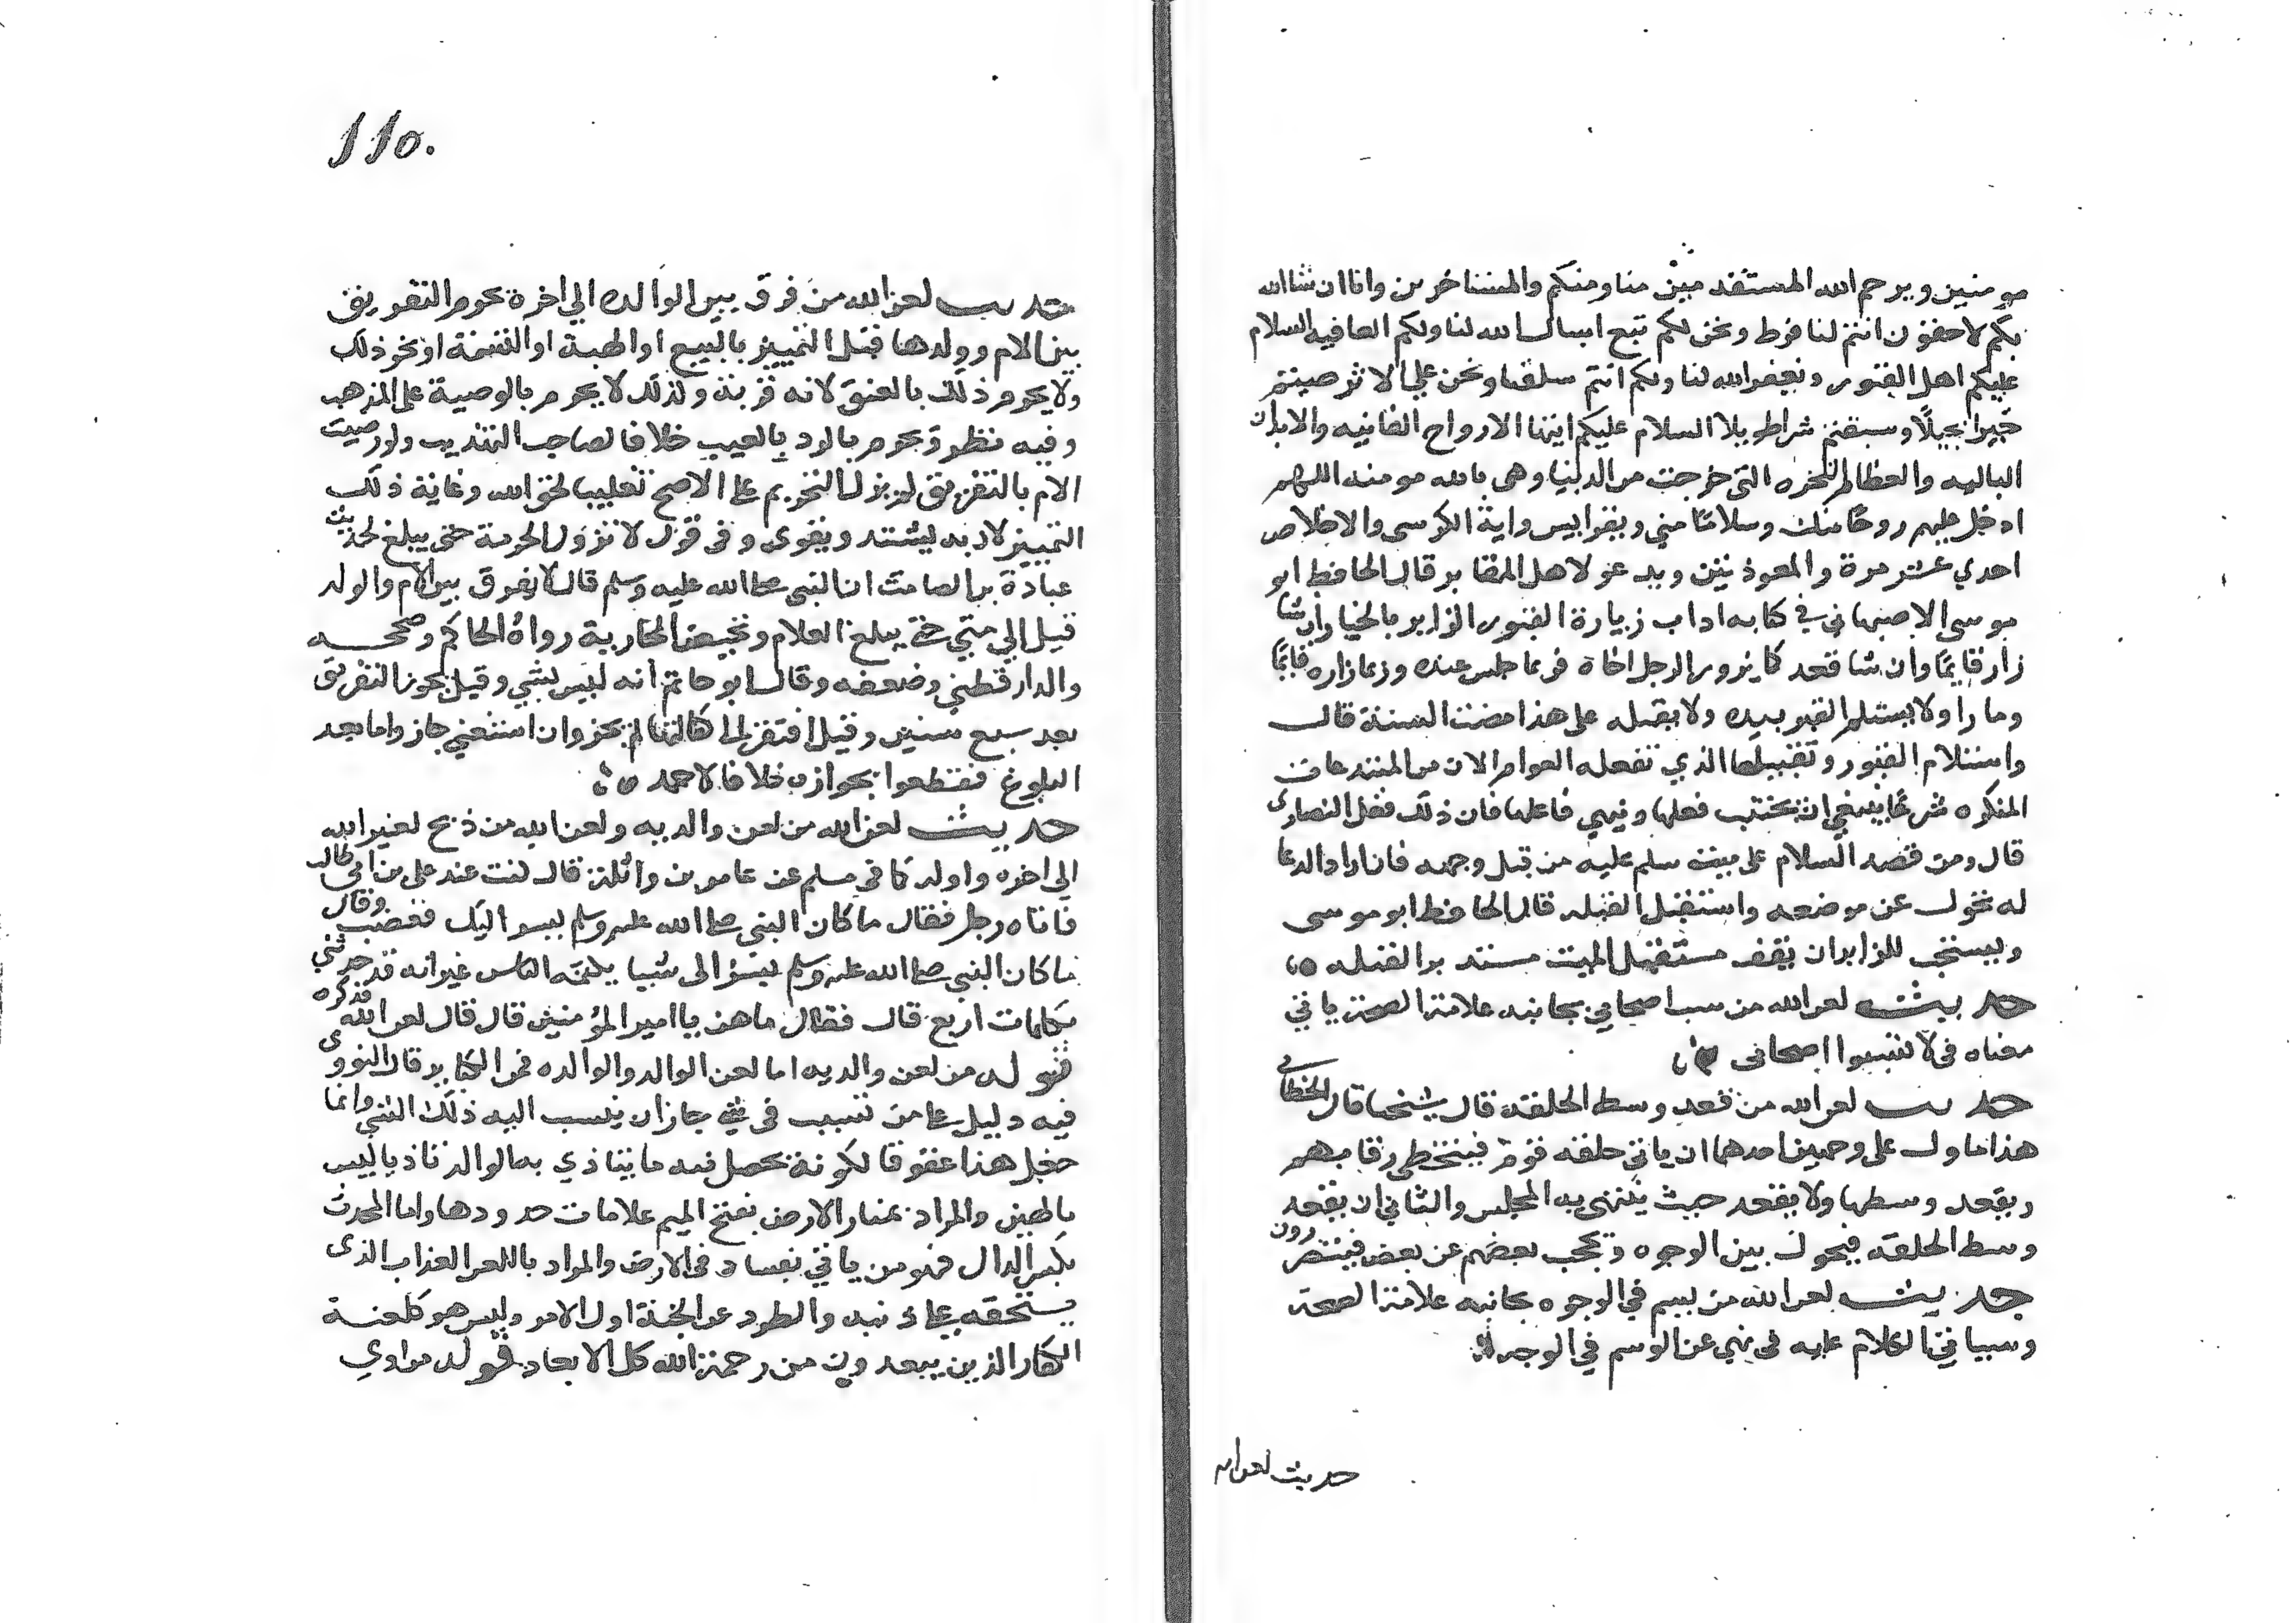 مومنين ويرحم الله المستقدمين منا ومنكم والمستاخرين وانا ان شا الله
بكم لاحقون انتم لنا فرط ونحن لكم تبع اسال الله لنا ولكم العافيه السلام
عليكم اهل القبور ويغفر الله لنا ولكم انتم سلفنا ونحن علي الاثر صبتم
خيرا بجيلا وسبقتم شرا طويلا السلام عليكم ايتها الارواح الفانيه والابدان
الباليه والعظام النخره التي خرجت من الدنيا وهي بالله مومنه اللهم
ادخل عليهم روحا منك وسلاما مني ويقرا يس واية الكرسي والاخلاص
احدي عشر مرة والمعوذتين ويدعو لاهل المقابر قال الحافظ ابو
موسى الاصبهاني في كتابه اداب زيارة القبور الزاير بالخيار ان شا
زار قايما وان شا قعد كما يزور الرجل اخاه فربما جلس عنده وربما زاره قايما
ومارا ولا يستلم القبر بيده ولا يقبله على هذا مضت السنة قال
واستلام القبور وتقبيلها الذي تفعله العوام الان من المبتدعات
المنكره شرعا ينبغي ان تجتنب فعلها وينهي فاعلها فان ذلك فعل النصارى
قال ومن قصد السلام على ميت سلم عليه من قبل وجهه فان اراد الدعا
له تحول عن موضعه واستقبل القبله قال الحافظ ابو موسى
ويستحب للزاير ان يقف مستقبل الميت مستدبر القبله ه
حديث لعن الله من سب اصحابي بجانبه علامة الصحة ياتي
معناه في لا تسبوا اصحابي ه
حديث لعن الله من قعد وسط الحلقة قال شيخنا قال الخطابي
هذا ماول على وجهين احدهما ان ياتي حلقة قوم فيتخطى رقابهم
ويقعد وسطها ولا يقعد حيث ينتهي به المجلس والثاني ان يقعد
وسط الحلقة فيحول بين الوجوه ويحجب بعضهم عن بعض فيتضررون
حديث لعن الله من يسم في الوجوه بجانبه علامة الصحة
وسياتي الكلام عليه في نهي عن الوسم في الوجه ه
حديث لعن الله
110.
حديث لعن الله من فرق بين الوالده الي اخرة يحرم التفريق
بين الام وولدها قبل التمييز بالبيع او الهبة او القسمة او نحو ذلك
ولا يحرم ذلك بالعتق لانه قربة ولذلك لا يحرم بالوصية على المذهب
وفيه نظر ويحرم بالرد بالعيب خلافا لصاحب التهذيب ولو رضيت
الام بالتفريق لم يزل التحريم على الاصح تغليبا لحق الله وغاية ذلك
التمييز لانه يستند ويقوى وفي قول لا تزول الحرمة حتى يبلغ لحديث
عبادة بن الصامت ان النبي صلى الله عليه وسلم قال لا يفرق بين الام والولد
قيل الي متي حتي يبلغ الغلام وتحيض الجارية رواه الحاكم وصححه
والدارقطني وضعفه وقال ابو حاتم انه ليس بشي وقيل يجوز التفريق
بعد سبع سنين وقيل ان افتقر الى كفالتها لم يجز وان استغني جاز واما بعد
البلوغ فقطعوا بجوازه خلافا لاحمد ه
حديث لعن الله من لعن والديه ولعن الله من ذبح لغير الله
الي اخره واوله كما في مسلم عن عامر بن واثلة قال كنت عند علي بن ابي طالب
فاتاه رجل فقال ما كان النبي صلى الله عليه وسلم يسر اليك فغضب وقال
ما كان النبي صلى الله عليه وسلم يسر الى شيا يكتمه الناس غير انه قد حدثني
بكلمات اربع قال فقال ما هن يا امير المؤمنين قال قال لعن الله فذكره
قوله من لعن والديه اما لعن الوالد والوالده فمن الكباير قال النووى
فيه دليل على من تسبب في شي جاز ان ينسب اليه ذلك الشي وانما
جعل هذا عقوقا لكونه يحصل منه ما يتاذي به الوالد تاذيا ليس
بالهين والمراد بمنار الارض بفتح الميم علامات حدودها واما المحدث
بكسر الدال فهو من ياتي بفساد في الارض والمراد باللعن العذاب الذى
يستحقه على ذنبه والطرد عن الجنة اول الامر وليس هو كلعنة
الكفار الذين يبعدون من رحمة الله كل الابعاد قوله من اوي